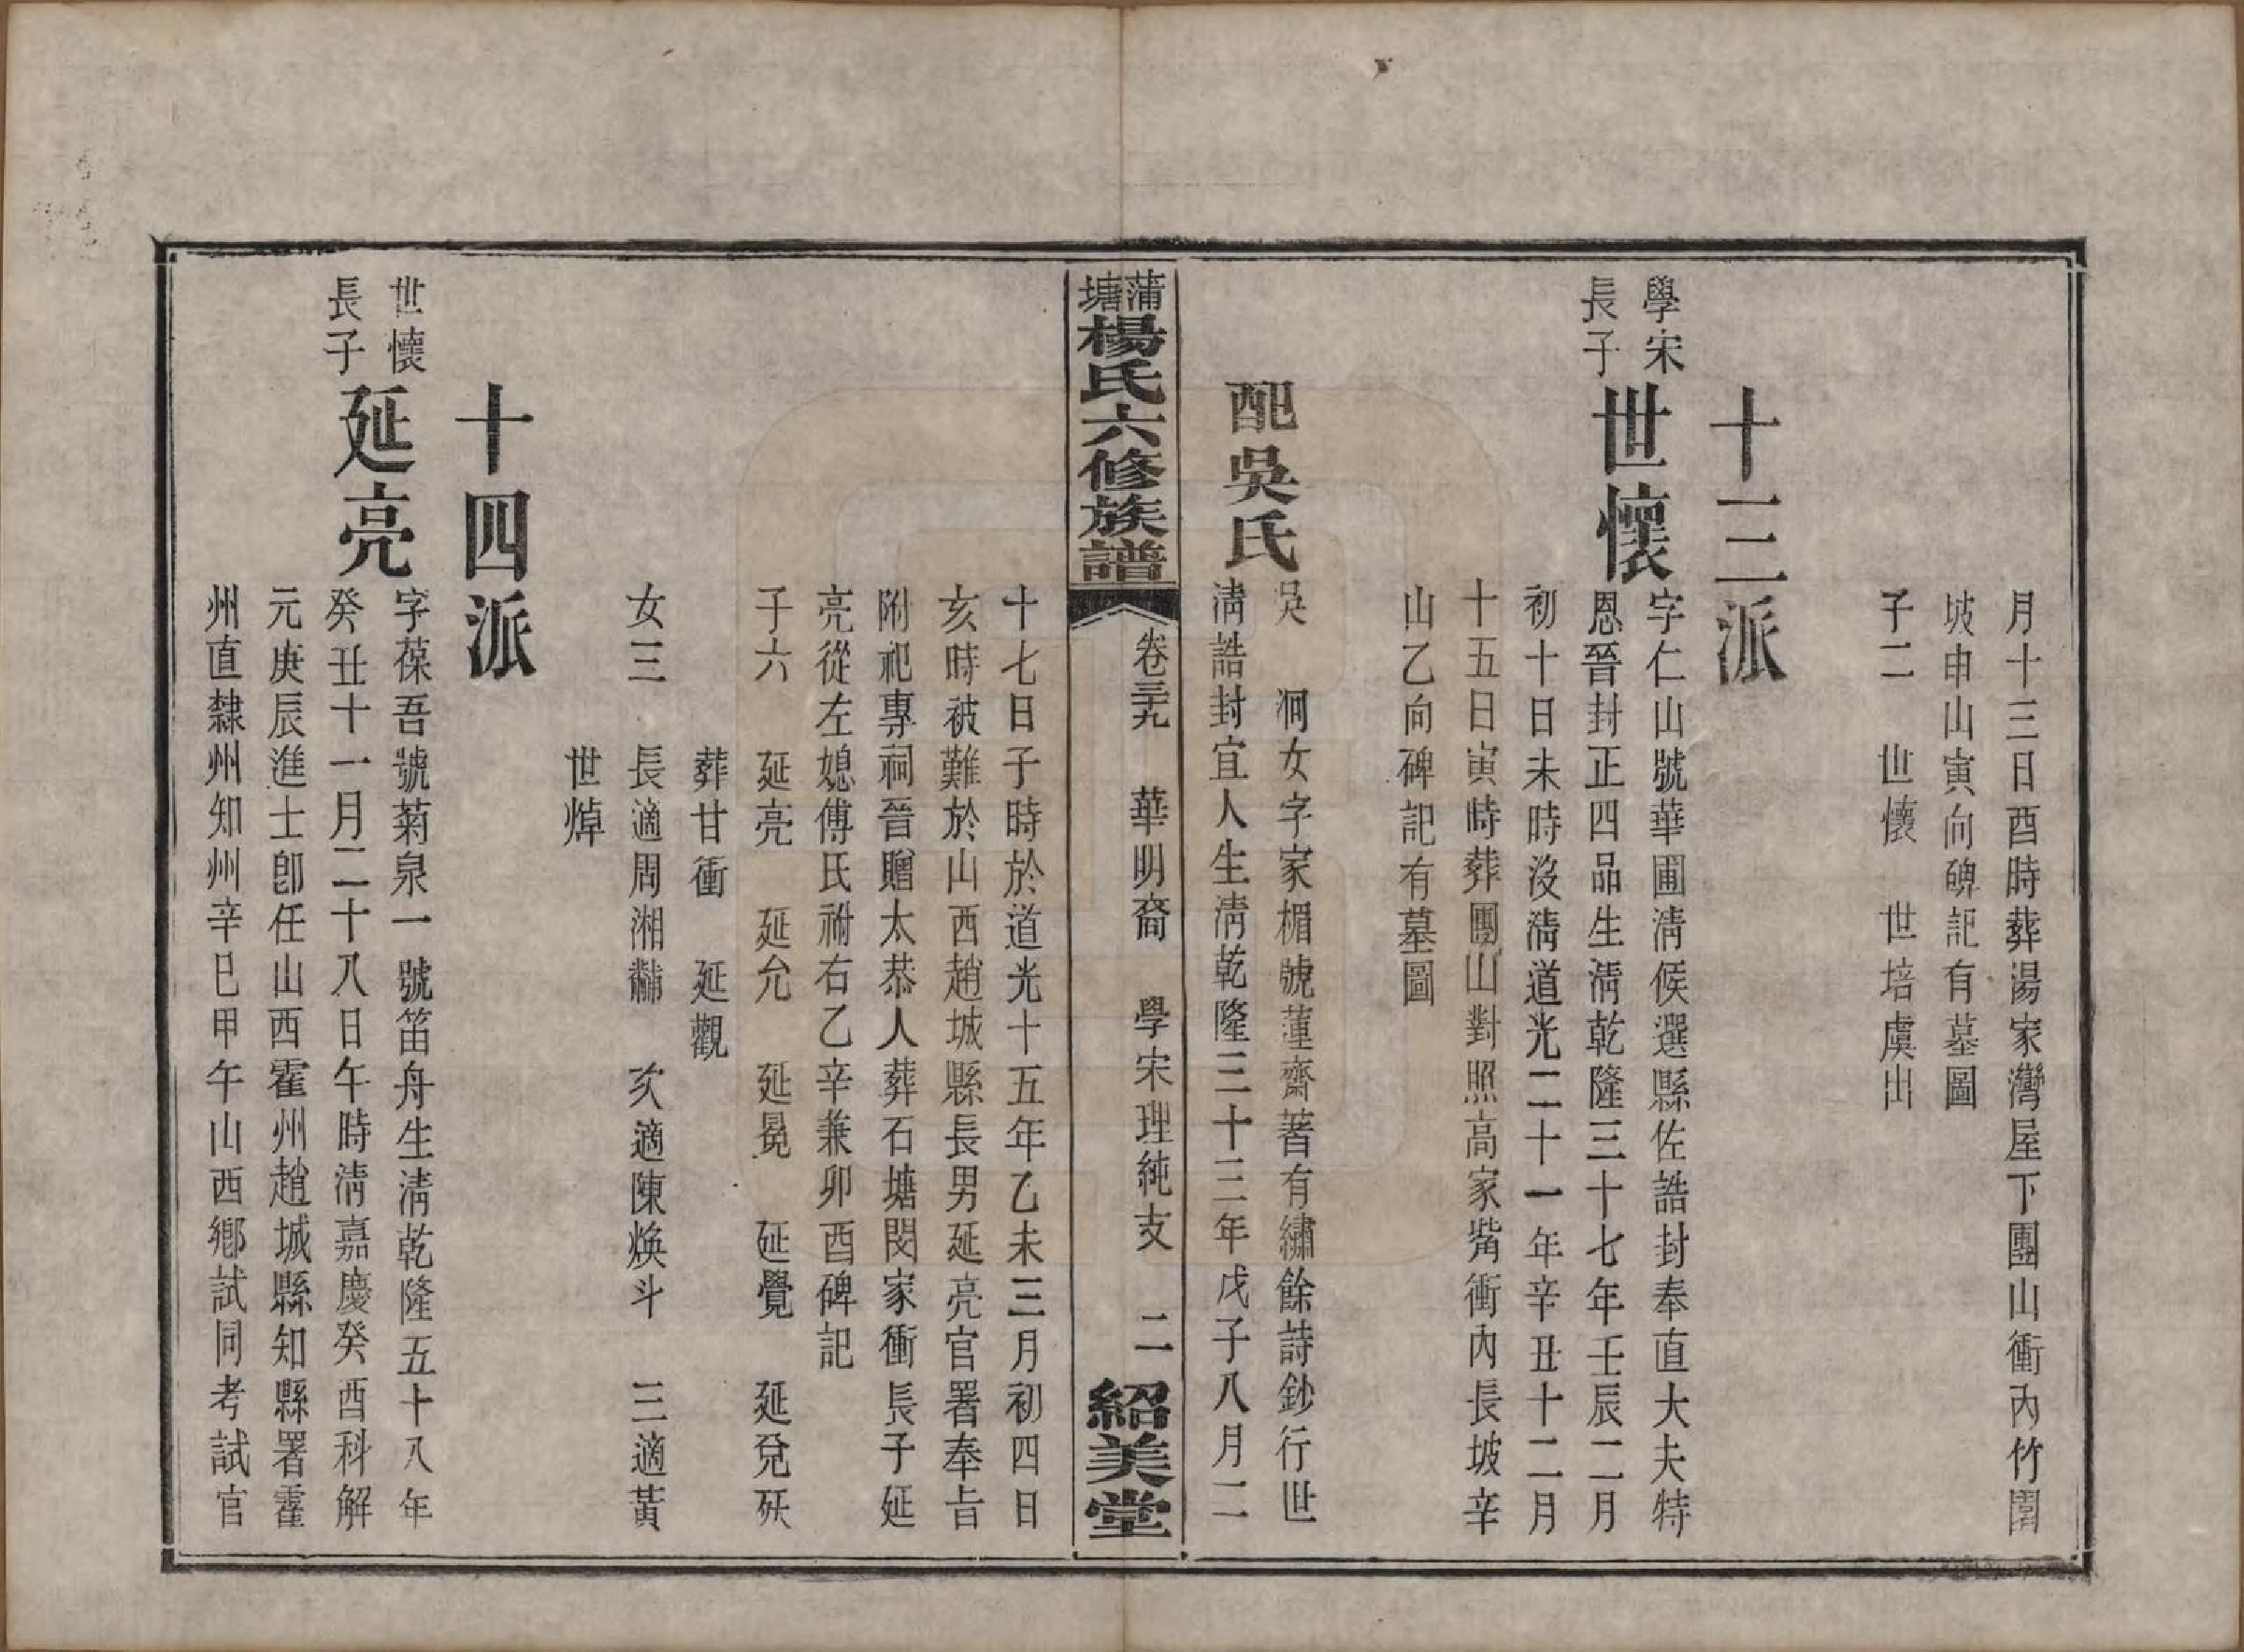 月十三日酉時葬湯家灣屋下團山衝內竹園
坡申山寅向碑記有墓圖
子二　世懷　世培虞出
十三派
學宋
長子
世懷
字仁山號華圃淸候選縣佐誥封奉直大夫特
恩晉封正四品生淸乾隆三十七年壬辰二月
初十日未時沒淸道光二十一年辛丑十二月
十五日寅時葬團山對照高家嘴衝內長坡辛
山乙向碑記有墓圖
配吳氏
吳　泂女字家楣號蓮齋著有繡餘詩鈔行世
淸誥封宜人生淸乾隆三十三年戊子八月二
蒲塘楊氏六修族譜
卷三十九　華明裔　學宋理純支　二
紹美堂
十七日子時於道光十五年乙未三月初四日
亥時被難於山西趙城縣長男延亮官署奉旨
附祀專祠晉贈太恭人葬石塘閔家衝長子延
亮從左媳傅氏祔右乙辛兼卯酉碑記
子六　延亮　延允　延冕　延覺　延兌　延
葬甘衝　延觀
女三　長適周湘黼　次適陳煥斗　三適黃
世焯
十四派
世懷
長子
延亮
字葆吾號菊泉一號笛舟生淸乾隆五十八年
癸丑十一月二十八日午時淸嘉慶癸酉科解
元庚辰進士卽任山西霍州趙城縣知縣署霍
州直隸州知州辛巳甲午山西鄕試同考試官